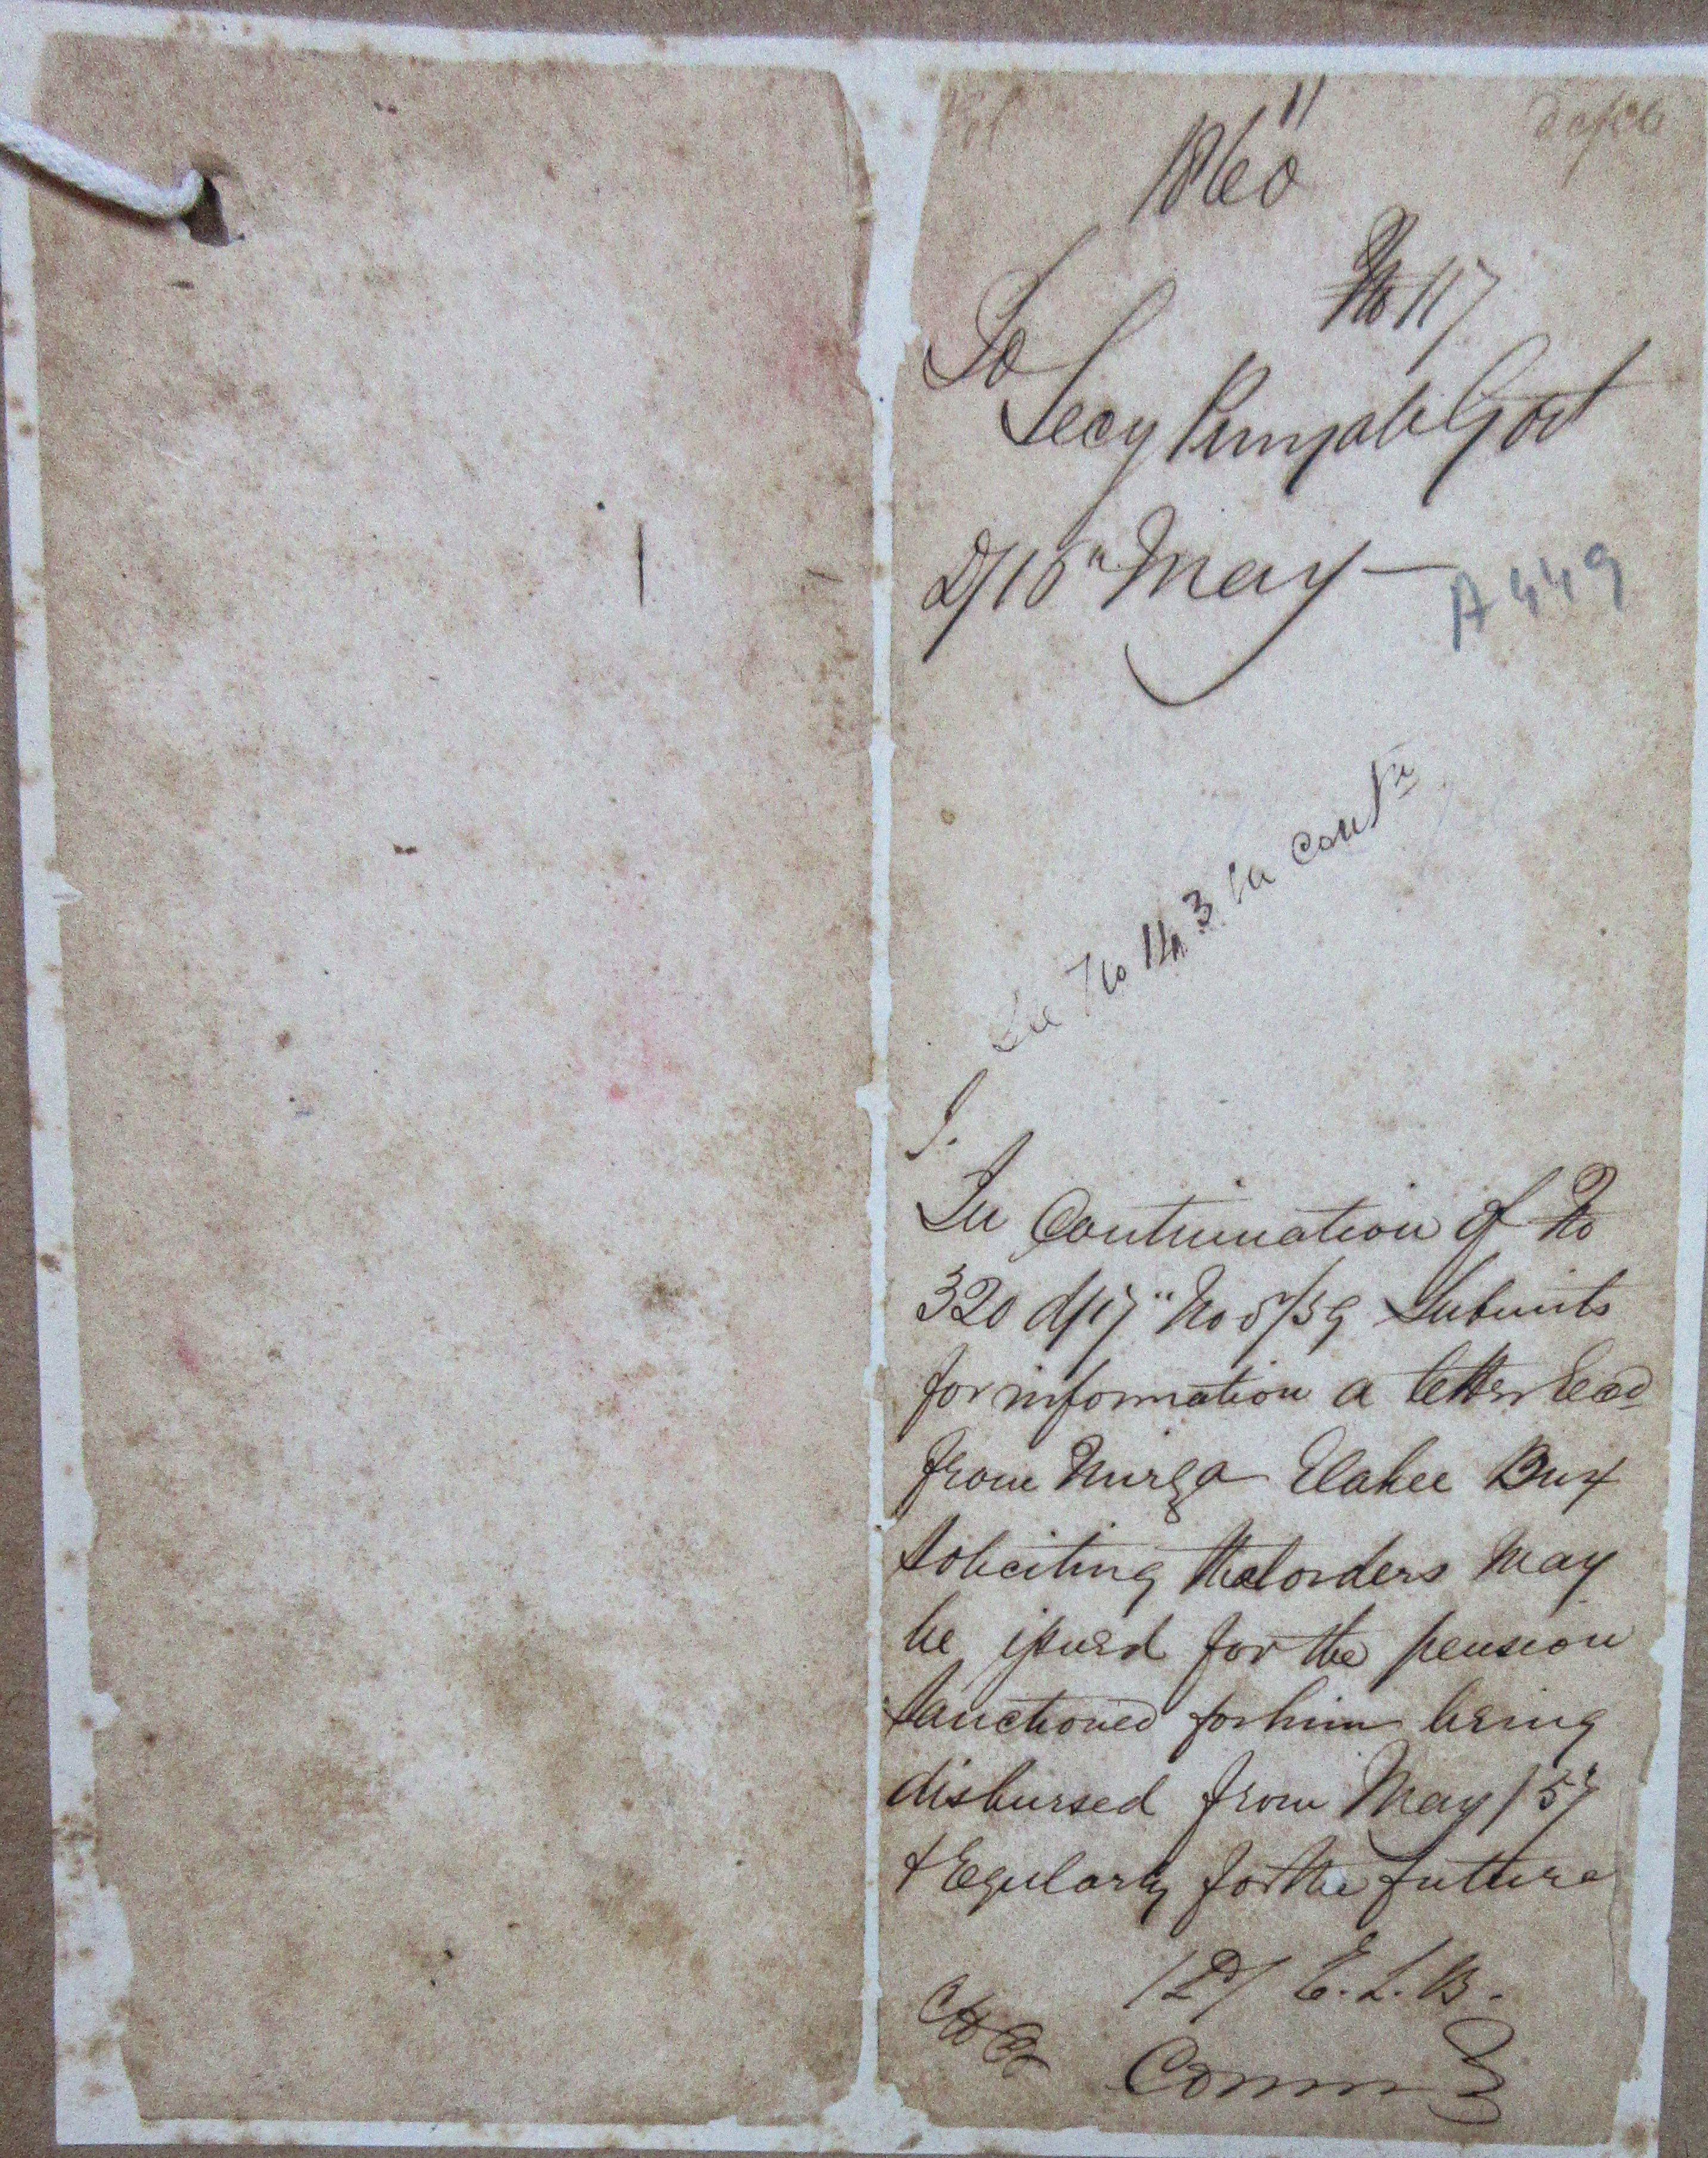 1860
No 117
To
Secy Punjab Govt
D/10" May —
A 449
See No 143 in Cont
In Continuation of No
320 d/17" No 5/59 Submits
for information a letter Recd
from Mirza Elahee Bux
soliciting that orders may
be issued for the pension
sanctioned for him being
disbursed from May /57
& Regularly for the future
/ E. L. B.
Commr